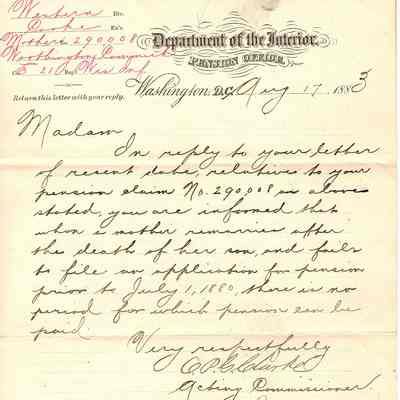 Western Div.
Cooke Ex'r.
Mother's 290,008
Worthington
B 21 Wis Inf
Return this letter with your reply.
Department of the Interior,
PENSION OFFICE,
Washington, D.C. Aug 17, 1883
Madam
In reply to your letter
of recent date, relative to your
pension claim No. 290,008 as above
stated, you are informed that
when a mother remarries after
the death of her son, and fails
to file an application for pension
prior to July 1, 1880, there is no
period for which pension can be
paid.
Very respectfully
Clarke
Acting Commissioner.